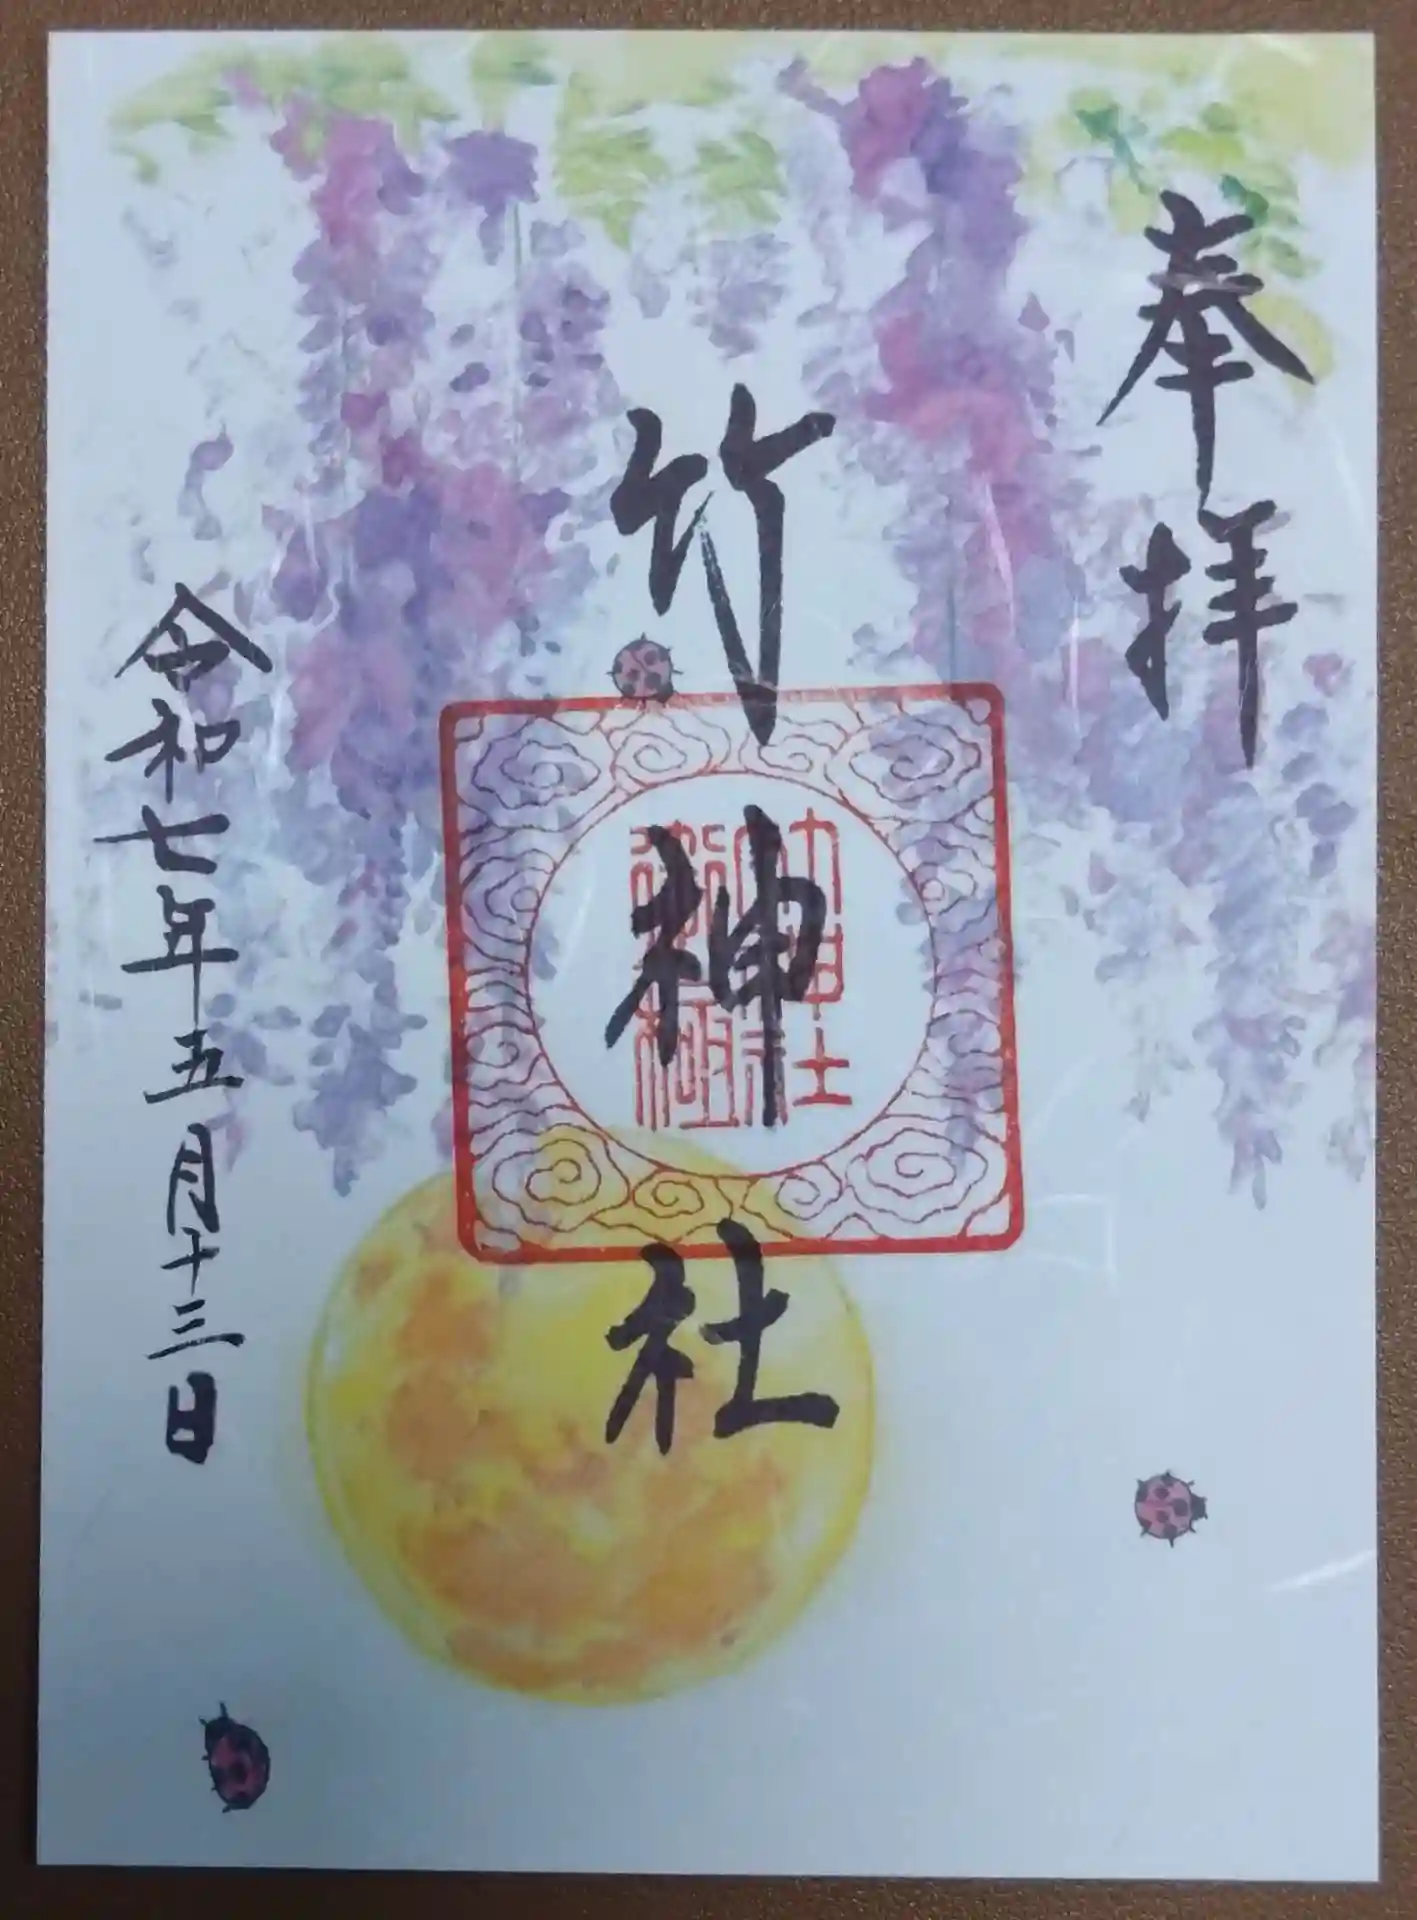 奉拝
竹神社
令和七年五月十三日